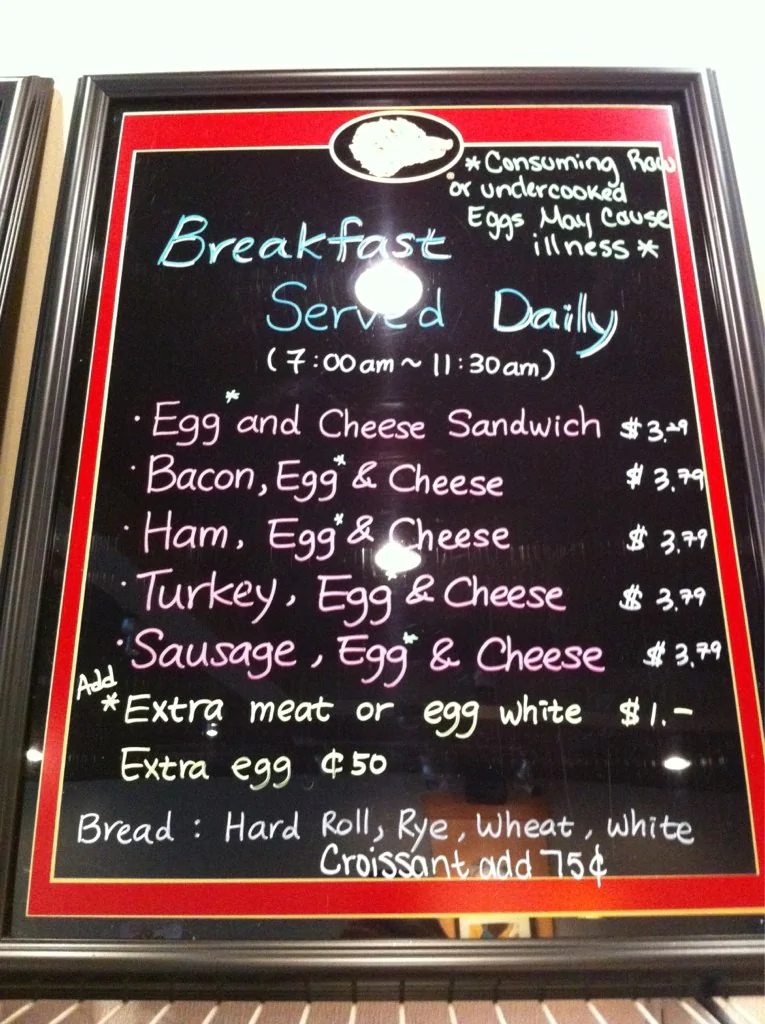 *Consuming Raw
or undercooked
Eggs May Cause
illness*
Breakfast
Served Daily
(7:00am ~ 11:30am)
· Egg* and Cheese Sandwich $3.29
· Bacon, Egg* & Cheese $3.79
· Ham, Egg* & Cheese $3.79
· Turkey, Egg* & Cheese $3.79
· Sausage, Egg* & Cheese $3.79
Add
*Extra meat or egg white $1.-
Extra egg ¢50
Bread : Hard Roll, Rye, Wheat, White
Croissant add 75¢